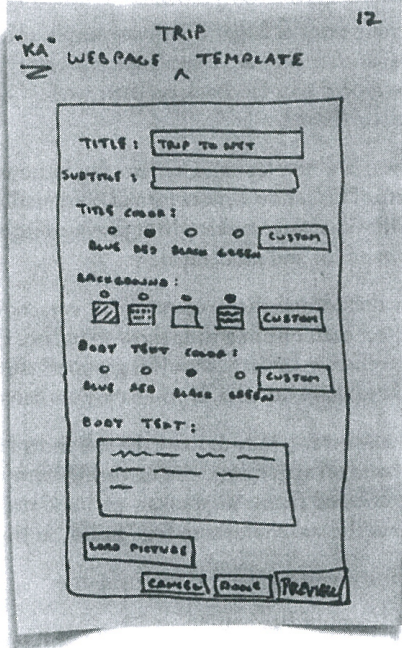 12
TRIP
"KA" WEBPAGE ^ TEMPLATE
TITLE: TRIP TO NYY
SUBTITLE:
TITLE COLOR:
BLUE RED BLACK GREEN CUSTOM
BACKGROUND:
CUSTOM
BODY TEXT COLOR:
BLUE RED BLACK GREEN CUSTOM
BODY TEXT:
LOAD PICTURE
CANCEL DONE PREVIEW